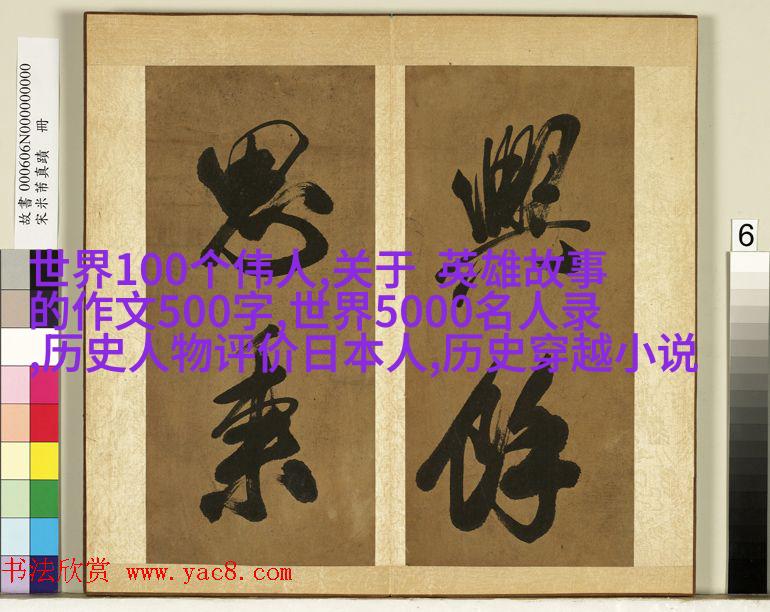 興餘
思秉
故書 000606N000000000
宋米芾真蹟 冊
6
世界100个伟人,关于 英雄故事
的作文500字,世界5000名人录
,历史人物评价日本人,历史穿越小说
书法欣赏 www.yac8.com